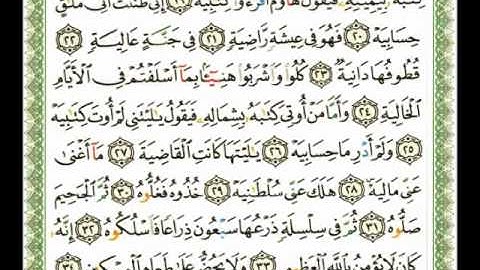 كِتَٰبَهُۥ بِيَمِينِهِۦ فَيَقُولُ هَآؤُمُ ٱقْرَءُوا۟ كِتَٰبِيَهْ ١٩ إِنِّى ظَنَنتُ أَنِّى مُلَٰقٍ
حِسَابِيَهْ ٢٠ فَهُوَ فِى عِيشَةٍ رَّاضِيَةٍ ٢١ فِى جَنَّةٍ عَالِيَةٍ ٢٢
قُطُوفُهَا دَانِيَةٌ ٢٣ كُلُوا۟ وَٱشْرَبُوا۟ هَنِيٓـًٔۢا بِمَآ أَسْلَفْتُمْ فِى ٱلْأَيَّامِ
ٱلْخَالِيَةِ ٢٤ وَأَمَّا مَنْ أُوتِىَ كِتَٰبَهُۥ بِشِمَالِهِۦ فَيَقُولُ يَٰلَيْتَنِى لَمْ أُوتَ كِتَٰبِيَهْ
٢٥ وَلَمْ أَدْرِ مَا حِسَابِيَهْ ٢٦ يَٰلَيْتَهَا كَانَتِ ٱلْقَاضِيَةَ ٢٧ مَآ أَغْنَىٰ
عَنِّى مَالِيَهْ ٢٨ هَلَكَ عَنِّى سُلْطَٰنِيَهْ ٢٩ خُذُوهُ فَغُلُّوهُ ٣٠ ثُمَّ ٱلْجَحِيمَ
صَلُّوهُ ٣١ ثُمَّ فِى سِلْسِلَةٍ ذَرْعُهَا سَبْعُونَ ذِرَاعًا فَٱسْلُكُوهُ ٣٢ إِنَّهُۥ
كَانَ لَا يُؤْمِنُ بِٱللَّهِ ٱلْعَظِيمِ ٣٣ وَلَا يَحُضُّ عَلَىٰ طَعَامِ ٱلْمِسْكِينِ ٣٤